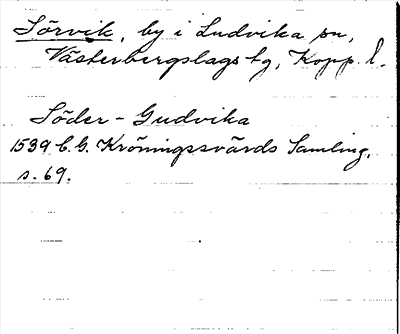 Sörvik, by i Ludvika sn,
Västerbergslags tg, Kopp. l.
Söder - Gudvika
1539 C. G. Kröningssvärds Samling,
s. 69.